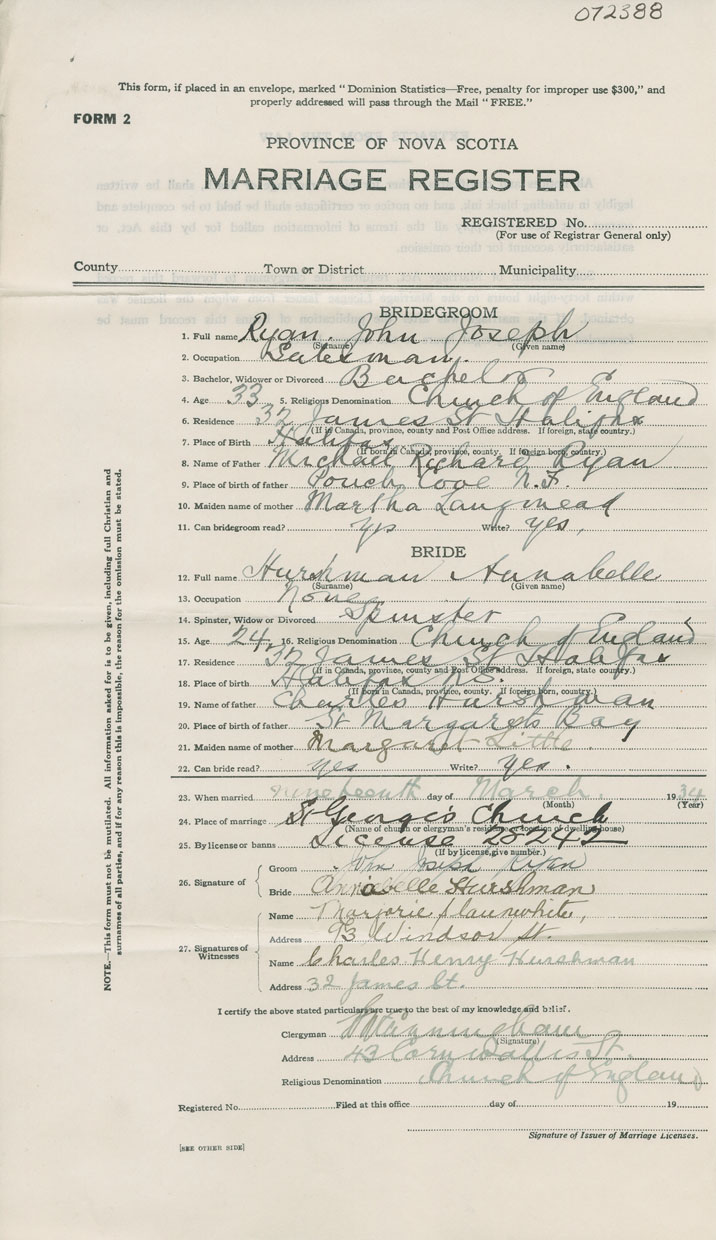 072388
This form, if placed in an envelope, marked "Dominion Statistics—Free, penalty for improper use $300," and
properly addressed will pass through the Mail "FREE."
FORM 2
PROVINCE OF NOVA SCOTIA
MARRIAGE REGISTER
REGISTERED No.
(For use of Registrar General only)
County Town or District Municipality
BRIDEGROOM
1. Full name Ryan. John Joseph
(Surname) (Given name)
2. Occupation Salesman.
3. Bachelor, Widower or Divorced Bachelor
4. Age 33 5. Religious Denomination Church of England
6. Residence 32 James St Halifax
(If in Canada, province, county and Post Office address. If foreign, state country.)
7. Place of Birth Halifax
(If born in Canada, province, county. If foreign born, country.)
8. Name of Father Michael Richard Ryan
9. Place of birth of father Pouch Cove N.F.
10. Maiden name of mother Martha Langmead
11. Can bridegroom read? yes Write? yes,
BRIDE
12. Full name Hurshman Annabelle
(Surname) (Given name)
13. Occupation None
14. Spinster, Widow or Divorced Spinster
15. Age 24, 16. Religious Denomination Church of England
17. Residence 32 James St Halifax
(If in Canada, province, county and Post Office address. If foreign, state country.)
18. Place of birth Halifax N.S.
(If born in Canada, province, county. If foreign born, country.)
19. Name of father Charles Hurshman
20. Place of birth of father St Margarets Bay
21. Maiden name of mother Margaret Little.
22. Can bride read? yes Write? yes.
23. When married nineteenth day of March. 1934
(Month) (Year)
24. Place of marriage St George's Church
(Name of church or clergyman's residence or location of dwelling house)
25. By license or banns License
(If by license, give number.)
26. Signature of
Groom John Joseph Ryan
Bride Annabelle Hurshman
27. Signatures of Witnesses
Name Marjorie Slaunwhite,
Address 93 Windsor St.
Name Charles Henry Hurshman
Address 32 James St.
I certify the above stated particulars are true to the best of my knowledge and belief.
Clergyman Cunningham
(Signature)
Address 43 Cornwallis St.
Religious Denomination Church of England
Registered No. Filed at this office day of 19
Signature of Issuer of Marriage Licenses.
[SEE OTHER SIDE]
NOTE.—This form must not be mutilated. All information asked for is to be given, including full Christian and
surnames of all parties, and if for any reason this is impossible, the reason for the omission must be stated.